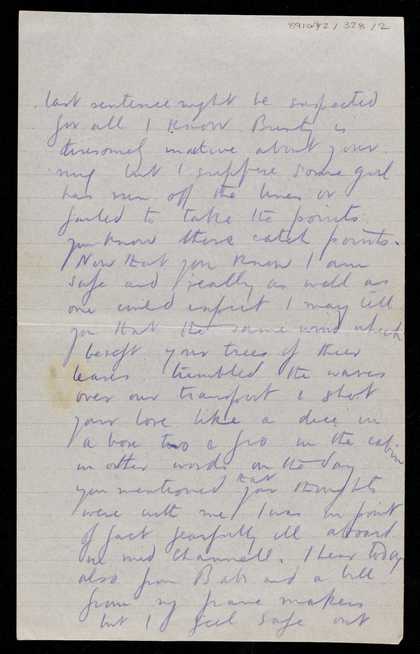 8910/2/328/2
last sentence might be suspected
for all I know. Bunty is
tiresomely inactive about your
ring but I suppose some girl
has run off the lines or
failed to take the points
you know those catch points.
Now that you know I am
safe and really as well as
one could expect I may tell
you that the same wind which
bereft your trees of their
leaves tumbled the waves
over our transport & shot
your love like a dice in
a box to & fro in the cabin
in other words on the day
you mentioned that your thoughts
were with me I was in point
of fact fearfully ill aboard
in mid Channell. I hear today
also from Bab and a bill
from my frame makers
but I feel safe out